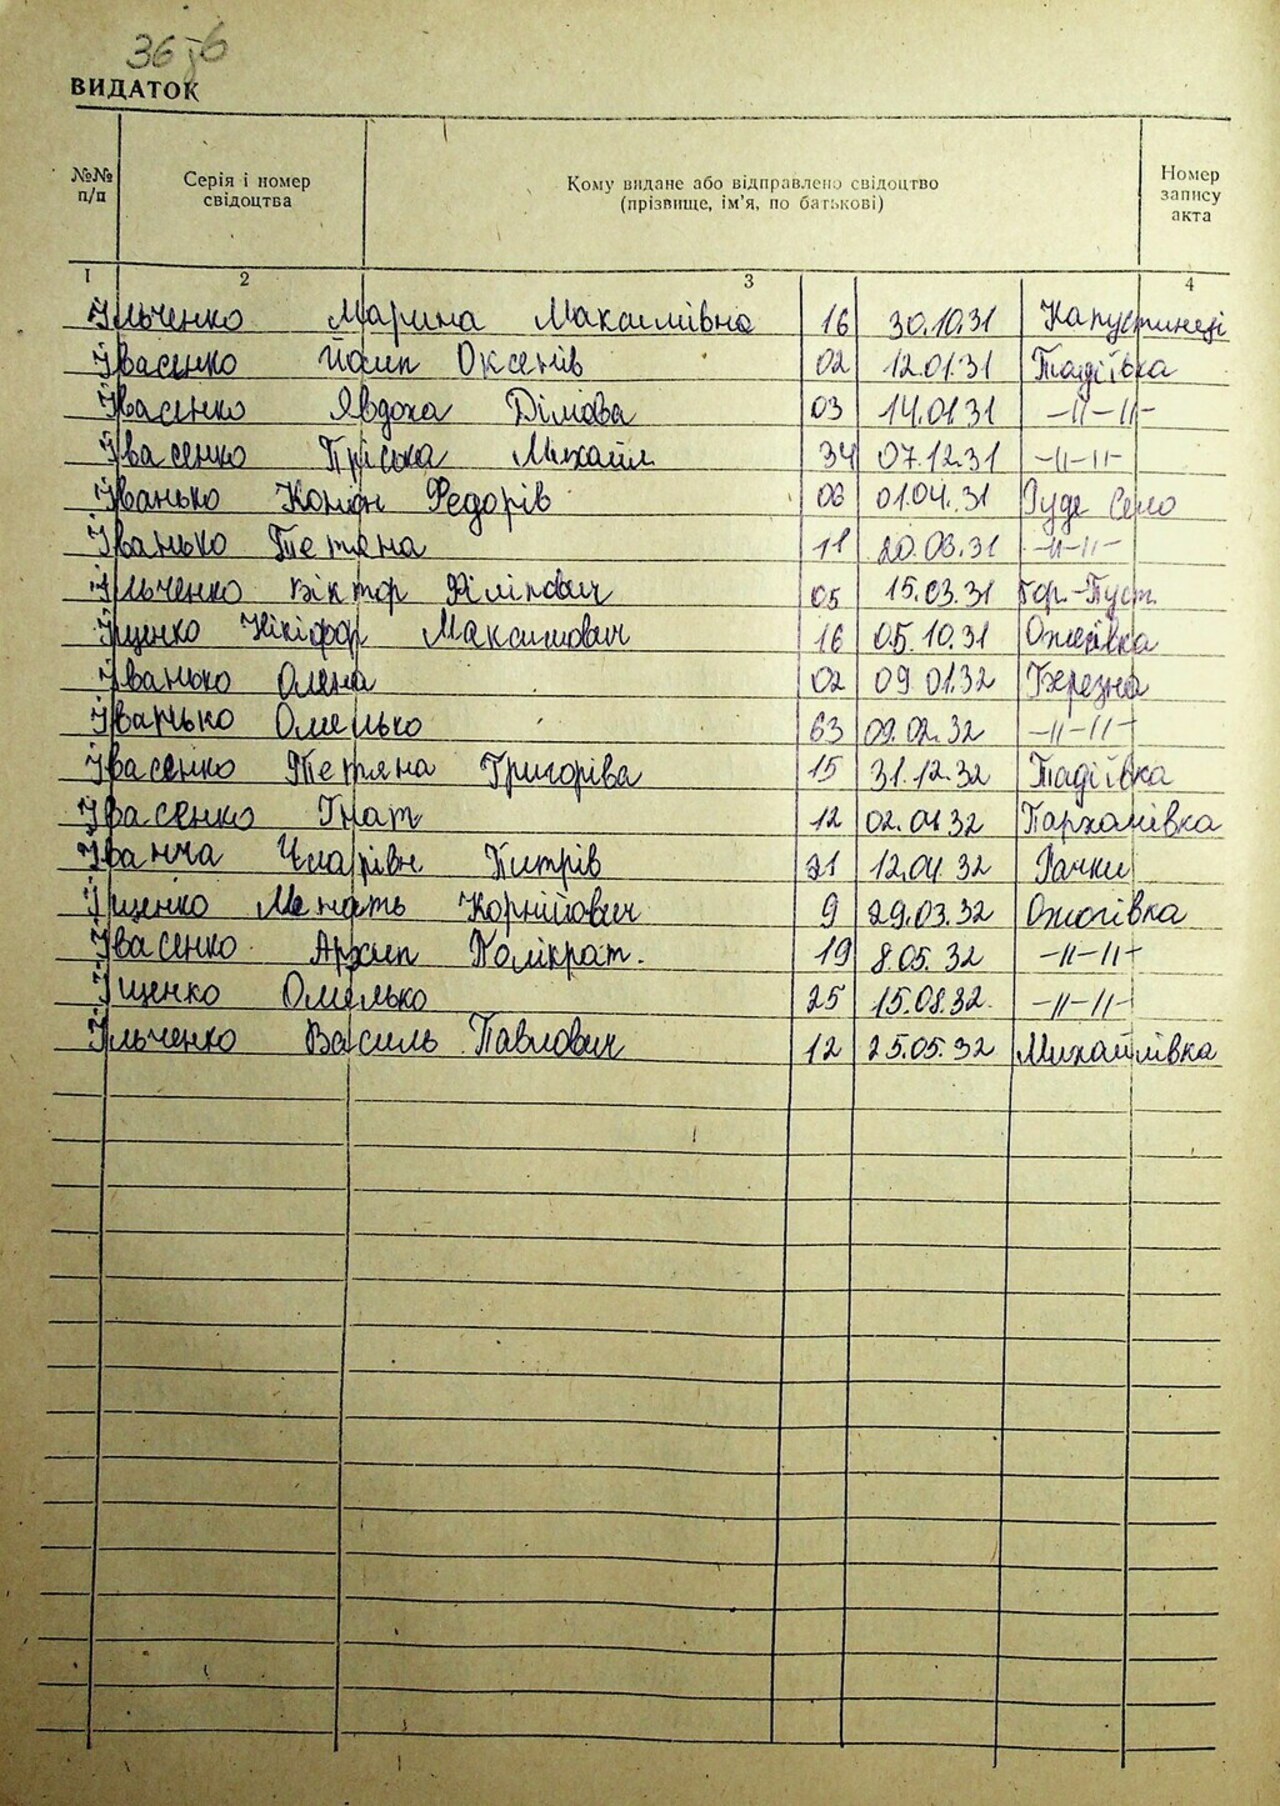 ВИДАТОК
№№ п/п
Серія і номер свідоцтва
Кому видане або відправлено свідоцтво (прізвище, ім'я, по батькові)
Номер запису акта
1 2 3 4
Ільченко Марина Максимівна 16 30.10.31 Капустинці
Івасенко Йосип Оксенів 02 12.01.31 Тадіївка
Івасенко Явдоха Дімова 03 14.01.31 -11-11-
Івасенко Пріська Михайл 34 07.12.31 -11-11-
Іванько Федорів 06 01.04.31 Руде Село
Іванько Тетяна 11 20.03.31 -11-11-
Ільченко Віктор Філіпович 05 15.03.31 Гор.-Пуст.
Іщенко Нікіфор Максимович 16 05.10.31 Ожегівка
Іванько Олена 02 09.01.32 Березна
Іванько Омелько 63 09.02.32 -11-11-
Івасенко Тетяна Григоріва 15 31.12.32 Тадіївка
Івасенко Гнат 12 02.01.32 Пархомівка
Іванча Питрів 21 12.01.32 Рачки
Іщенко Корнійович 9 29.03.32 Ожогівка
Івасенко Архип Полікрат. 19 8.05.32 -11-11-
Іщенко Омелько 25 15.08.32. -11-11-
Ільченко Василь Павлович 12 25.05.32 Михайлівка